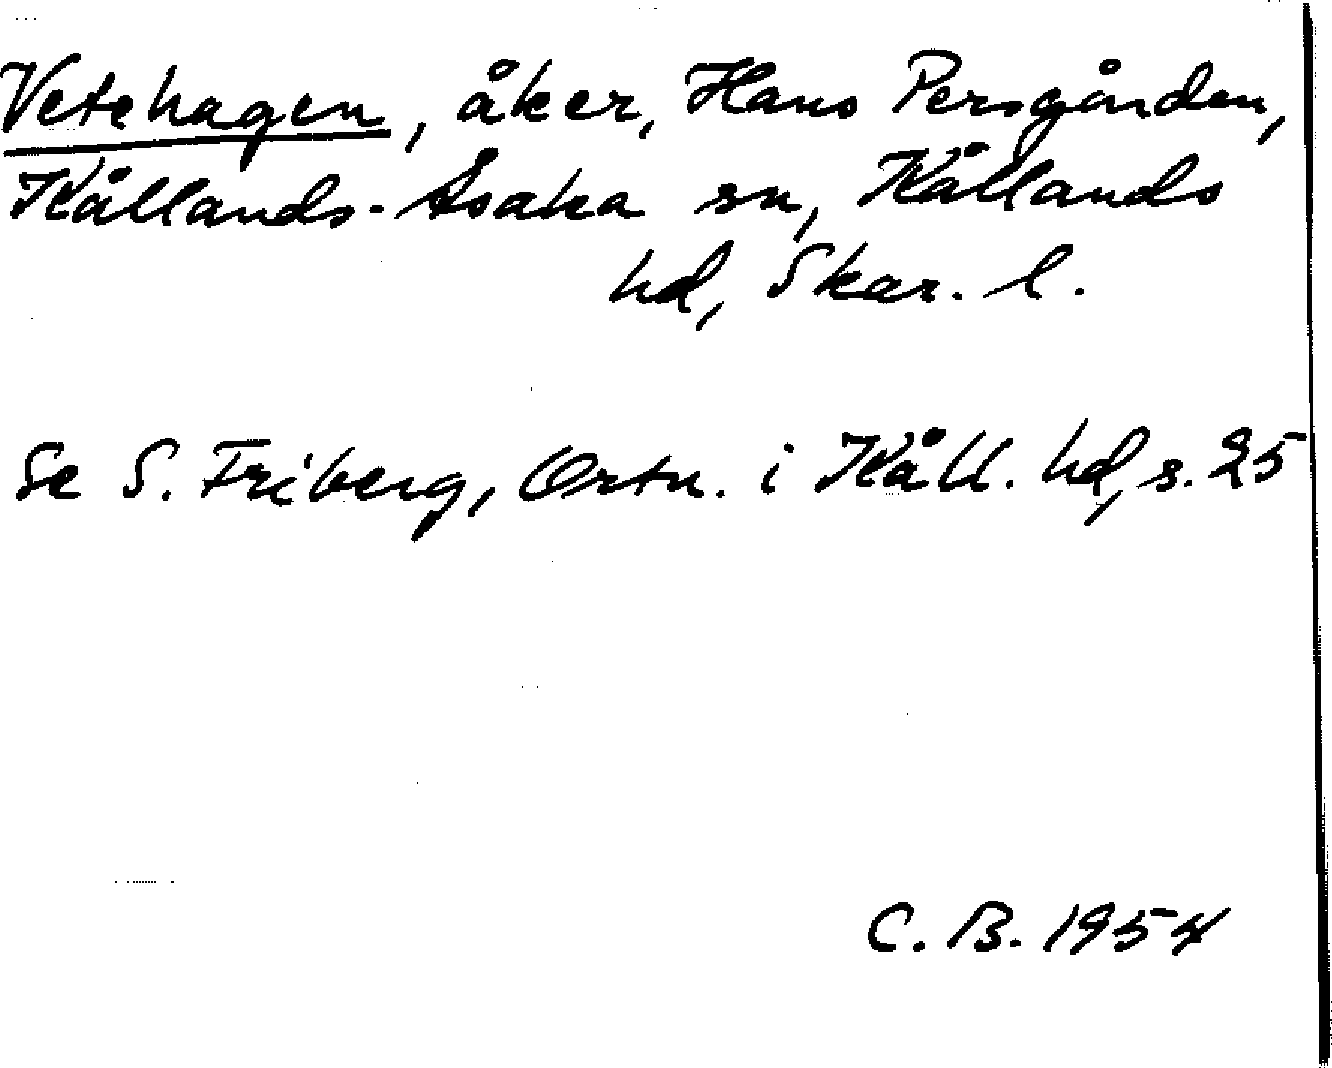 Vetehagen, åker, Hans Persgården,
Kållands-Åsaka sn, Kållands
hd, Skar. l.
Se S. Friberg, Ortn. i Kåll. hd, s. 25
C. B. 1954